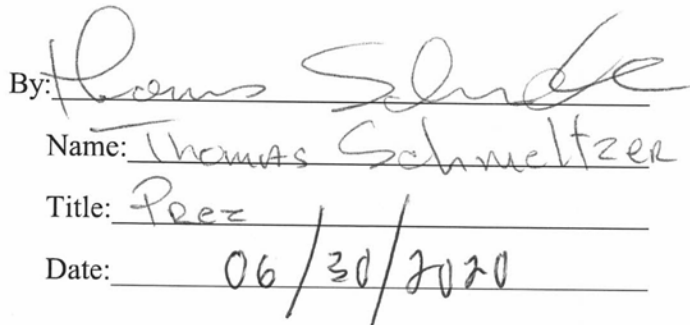 By: Thomas
Name: Thomas Schmeltzer
Title: Prez
Date: 06/30/2020